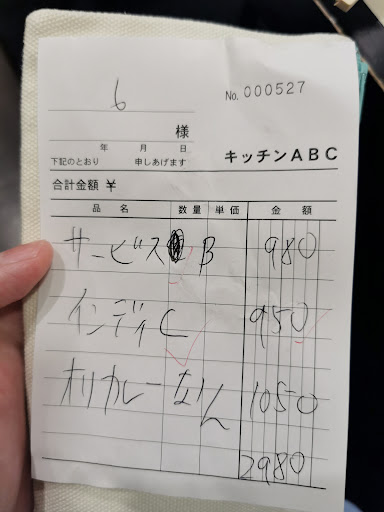 6
No. 000527
様
年 月 日
下記のとおり 申しあげます
キッチンABC
合計金額 ¥
品名 数量 単価 金額
サービス B 980
インディ C 950
オリカレー なん 1050
2980